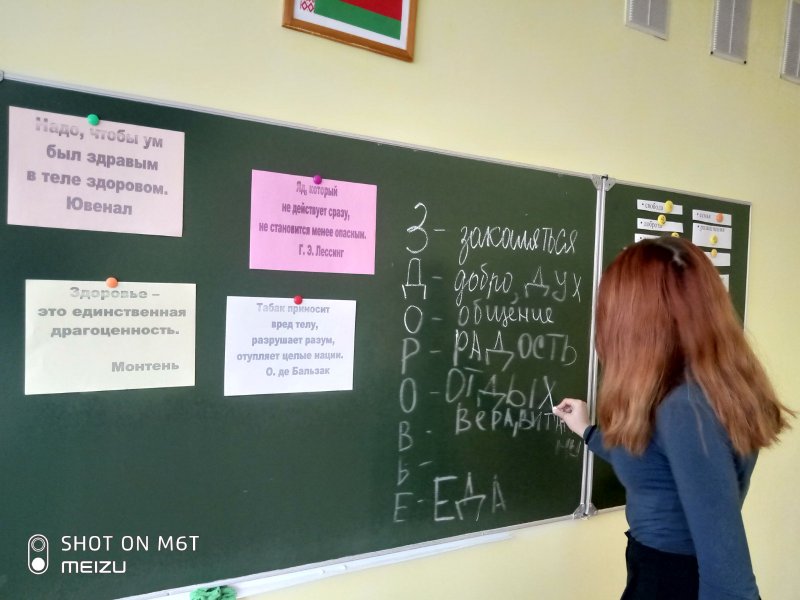 Надо, чтобы ум
был здравым
в теле здоровом.
Ювенал
Яд, который
не действует сразу,
не становится менее опасным.
Г. Э. Лессинг
Здоровье –
это единственная
драгоценность.
Монтень
Табак приносит
вред телу,
разрушает разум,
отупляет целые нации.
О. де Бальзак
З - закаляться
Д - добро, дух
О - общение
Р - РАДОСТЬ
О - ОТДЫХ
В - ВЕРА,
Ь -
Е - ЕДА
• свобода
• доброта
SHOT ON M6T
MEIZU